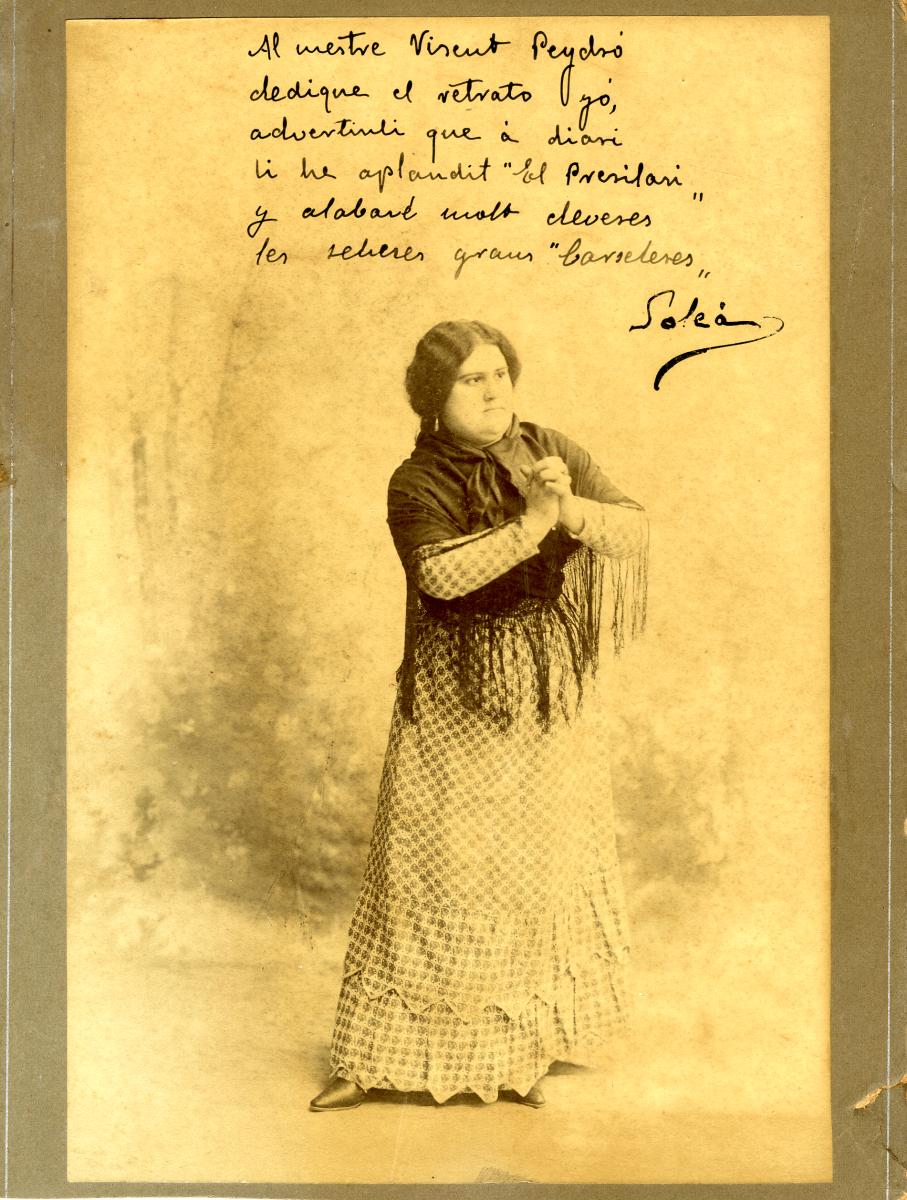 Al mestre Visent Peydró
dedique el retrato yó,
advertintli que á diari
li he aplaudit "El Presilari"
y alabaré molt deveses
les seheses grans "Carseleses"
Soleá